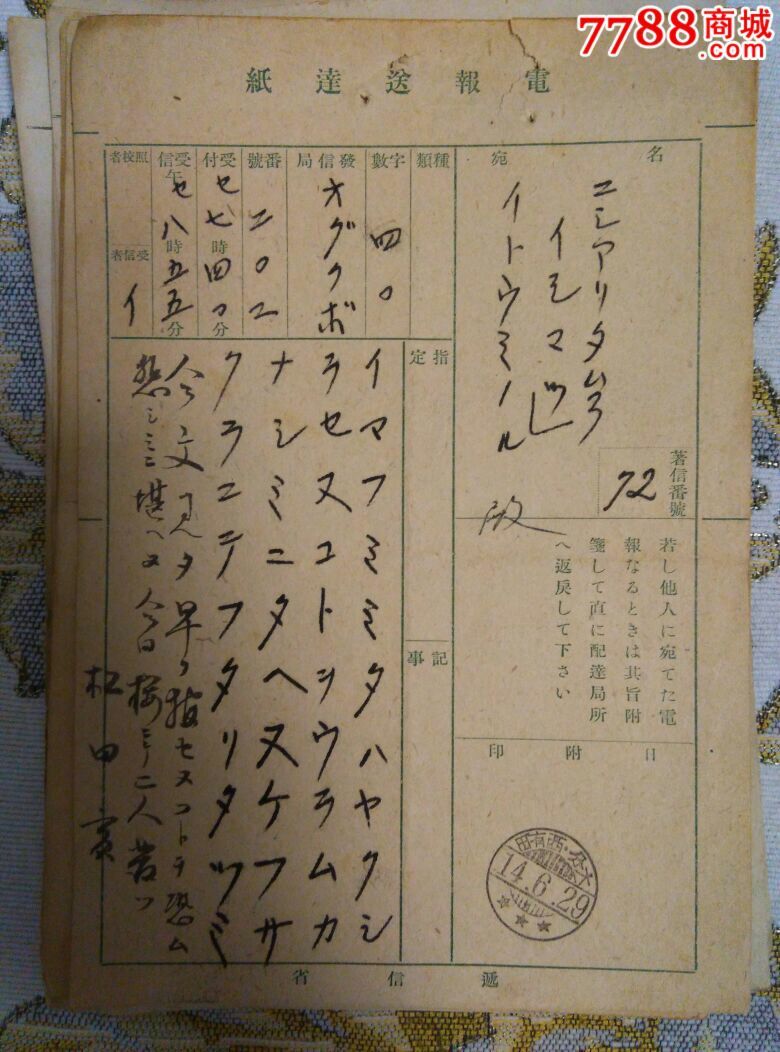 7788商城
.com
電報送達紙
名宛
ニシアリタムラ
イシマ
イトウミノル
殿
著信番號
72
若し他人に宛てた電
報なるときは其旨附
箋して直に配達局所
へ返戻して下さい
日附印
大・西有田
14.6.29
種類
字數
四〇
發信局
オグクボ
番號
二〇二
受付
セ七時四〇分
受信午
セ八時五五分
照校者
受信者
イ
指定
記事
イマフミミタハヤクシ
ラセヌコトヲウラムカ
ナシミニタヘヌケフサ
クラニテフタリタツミ
今文見タ早ク報セヌコトヲ恐ム
悲シミニ堪ヘヌ今日桜ニテ二人
松田
遞信省